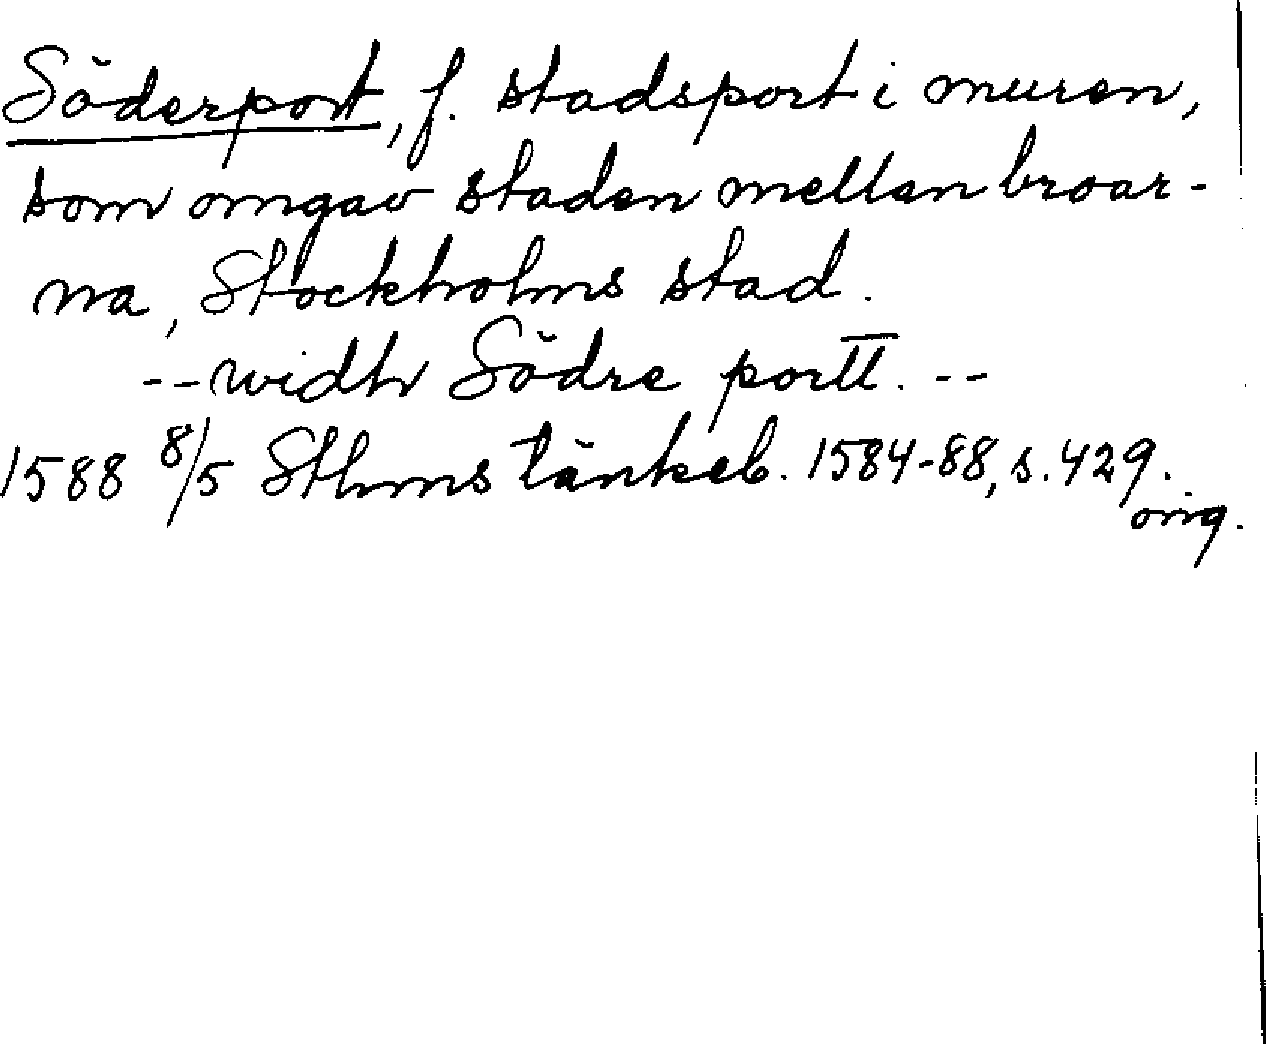 Söderport, f. stadsport i muren,
som omgav staden mellan broar-
na, Stockholms stad.
-- widh Södre portt. --
1588 8/5 Sthms tänkeb. 1584-88, s. 429.
orig.